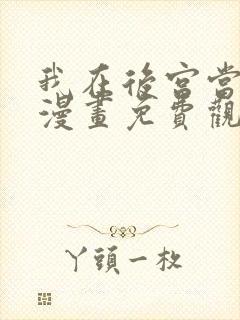 我在後宮當
漫畫免費觀
丫頭一枚